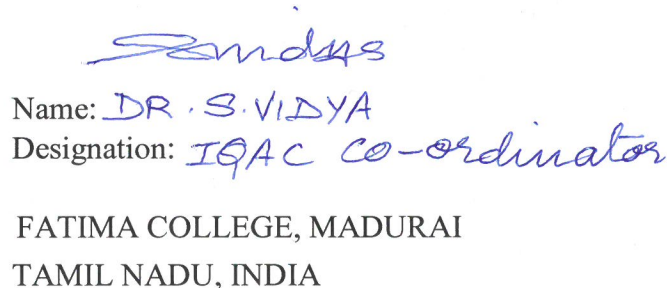 Name: DR. S. VIDYA
Designation: IQAC Co-ordinator
FATIMA COLLEGE, MADURAI
TAMIL NADU, INDIA